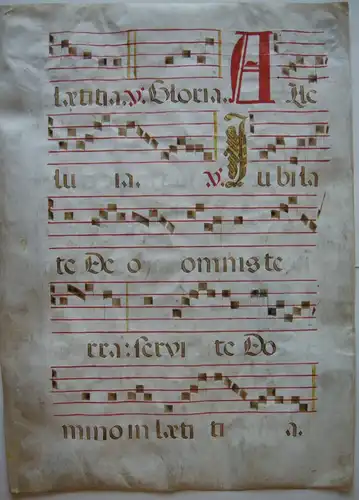 lætitia. ℣. Gloria. Alle
lu ia. ℣. Jubila
te Deo omnis te
rra: servi te Do
mino in læti ti a.